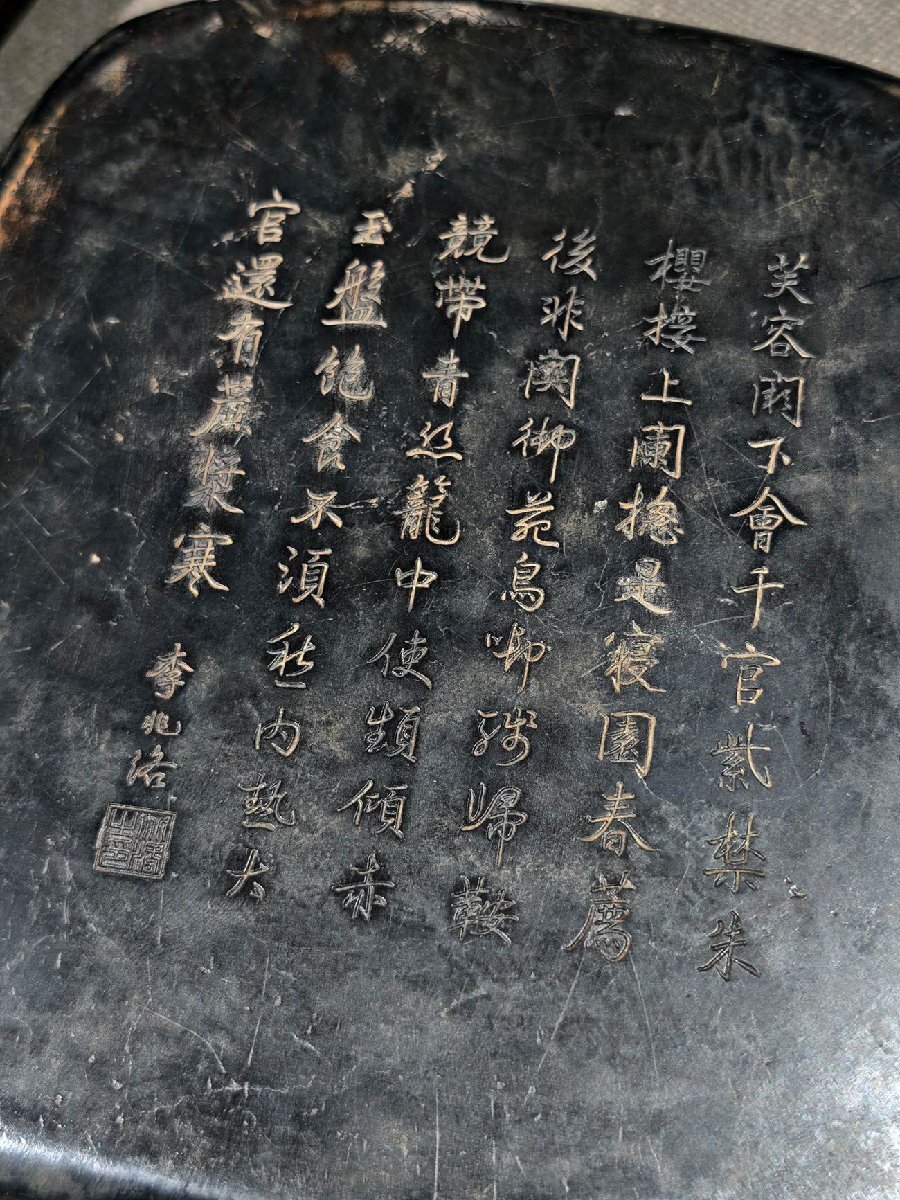 芙容闕下會千官紫禁朱
櫻接上闌摠是寢園春薦
後非関御苑鳥啣殘歸鞍
競帶青絲籠中使頻傾赤
玉盤飽食不須愁内熱大
官還有蔗漿寒
李兆洛